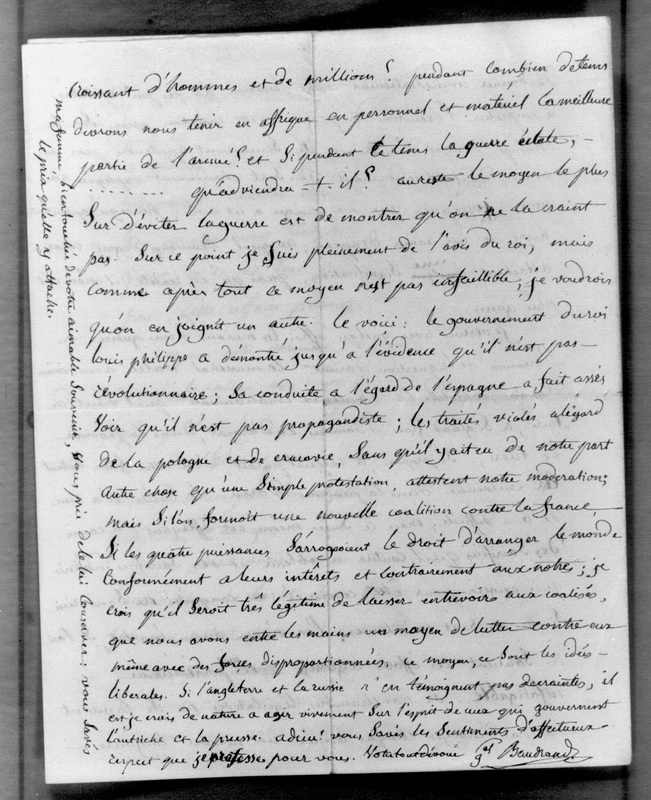 Croissant d'hommes et de millions? pendant combien detems
devrons nous tenir en affrique en personnel et matériel la meilleure
partie de l'armée? et Si pendant ce tems la guerre éclate, -
......... qu'adviendra-t-il? aureste le moyen le plus
Sur d'éviter laguerre est de montrer qu'on ne la craint
pas. Sur ce point je suis pleinement de l'avis du roi, mais
comme après tout ce moyen n'est pas infaillible, je voudrois
qu'on en joignit un autre. le voici: le gouvernement duroi
louis philippe a démontré jusqu'a l'évidence qu'il n'est pas -
révolutionnaire; Sa conduite a l'égard de l'espagne a fait assés
Voir qu'il n'est pas propagandiste; les traités violés alégard
de la pologne et de cracovie, Sans qu'il y ait eu de notre part
Autre chose qu'une Simple protestation, attestent notre modération;
mais Silon formoit une nouvelle coalition contre la france,
Si les quatre puissances S'arrogeoient le droit d'arranger le monde
Conformément a leurs intérêts et contrairement aux notre; je
crois qu'il Seroit très légitime de laisser entrevoir aux coalisés,
que nous avons entre les mains un moyen de lutter contre eux
même avec des forces disproportionnées, ce moyen, ce Sont les idées -
liberales. Si l'angleterre et la russie n'en témoignent pas decraintes, il
est je crois de nature a agir vivement Sur l'esprit de ceux qui gouvernent
l'autriche et la prusse. adieu! vous Savés les Sentiments d'affectueux
respect que je professe pour vous. Votre tout dévoué gal Baudrand
ma femme, bien touchée de votre aimable Souvenir, Vous prie de le lui Conserver: vous Savés
le prix qu'elle y attache.